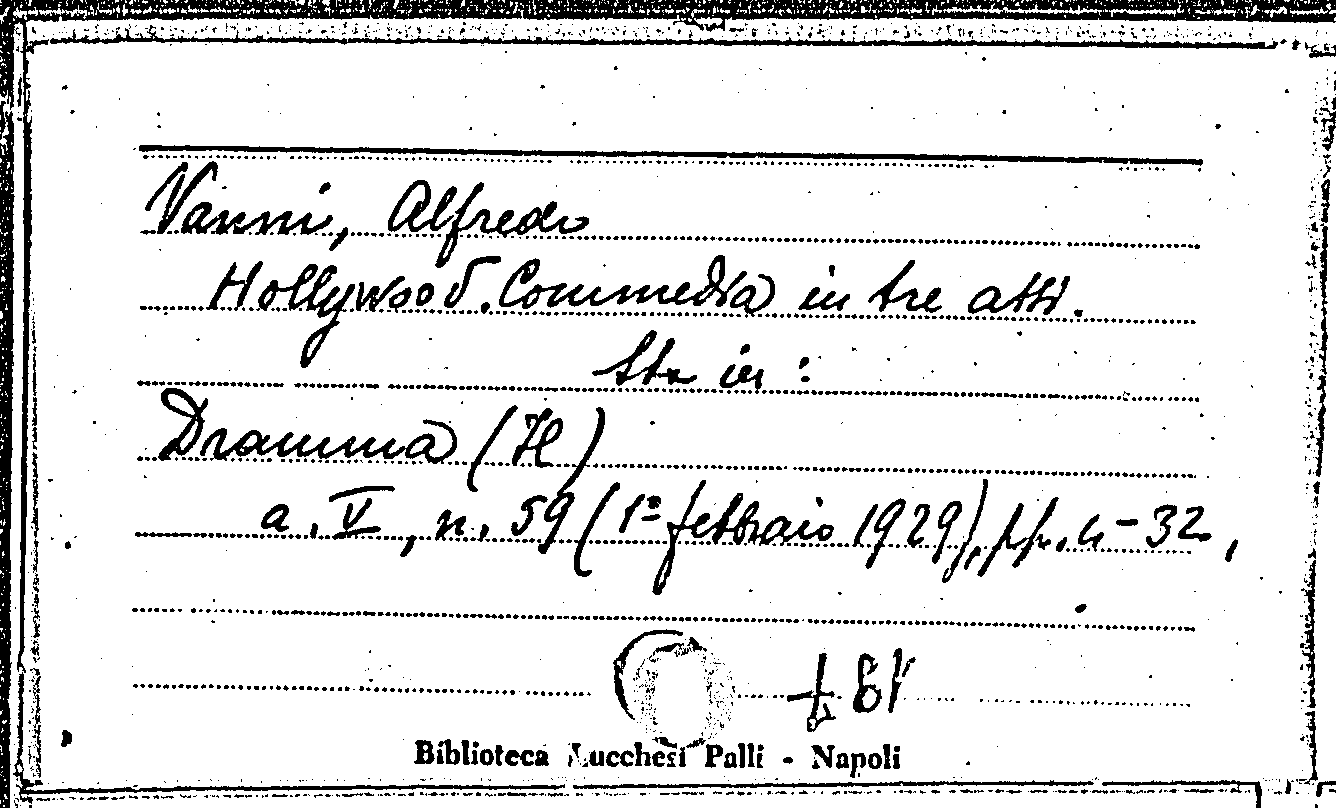 Vanni, Alfredo
Hollywood. Commedia in tre atti.
Sta in:
Dramma (Il)
a. V, n. 59 (1º febbraio 1929), pp. 4-32,
Biblioteca Lucchesi Palli - Napoli